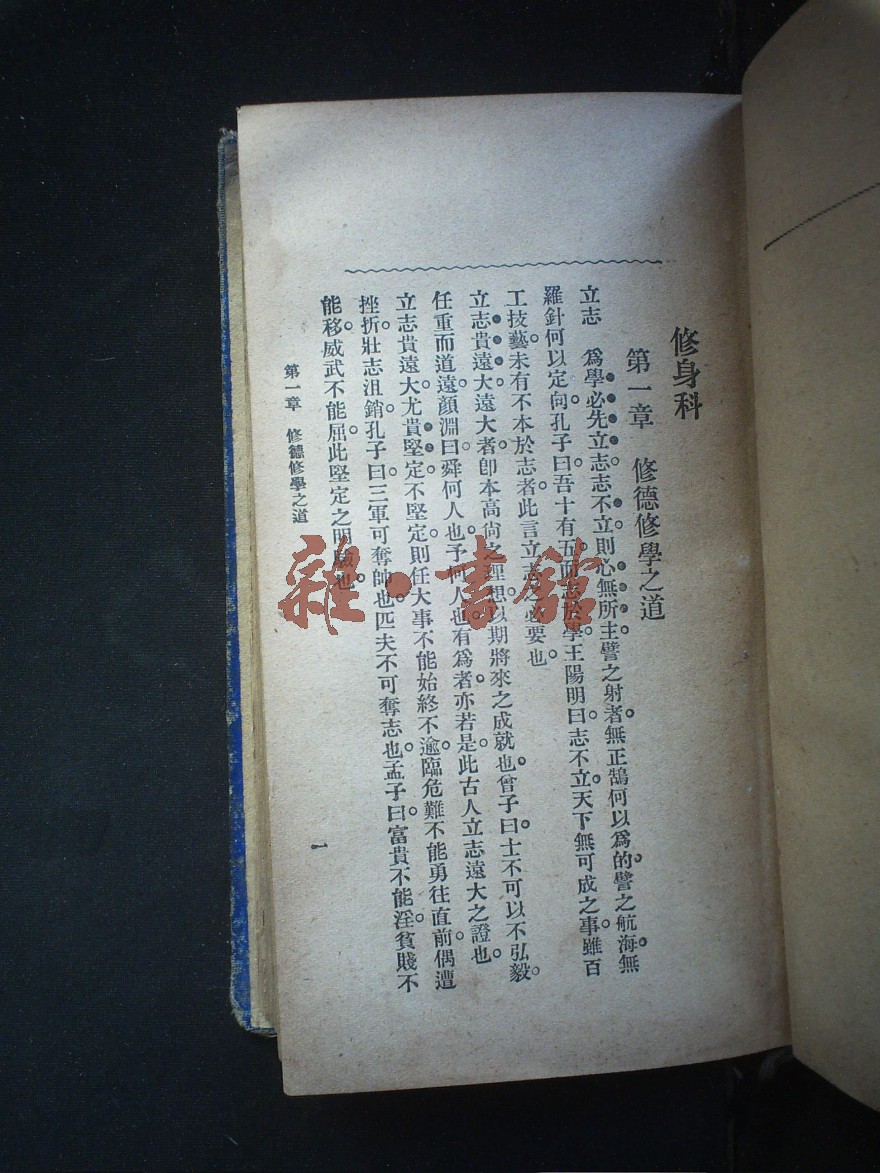 修身科
第一章　修德修學之道
立志　爲學必先立志志不立則心無所主譬之射者無正鵠何以爲的譬之航海無
羅針何以定向孔子曰吾十有五而志於學王陽明曰志不立天下無可成之事雖百
工技藝未有不本於志者此言立志之必要也
立志貴遠大遠大者卽本高尙之理想以期將來之成就也曾子曰士不可以不弘毅
任重而道遠顏淵曰舜何人也予何人也有爲者亦若是此古人立志遠大之證也
立志貴遠大尤貴堅定不堅定則任大事不能始終不逾臨危難不能勇往直前偶遭
挫折壯志沮銷孔子曰三軍可奪帥也匹夫不可奪志也孟子曰富貴不能淫貧賤不
能移威武不能屈此堅定之明驗也
第一章　修德修學之道
一
雜·書館